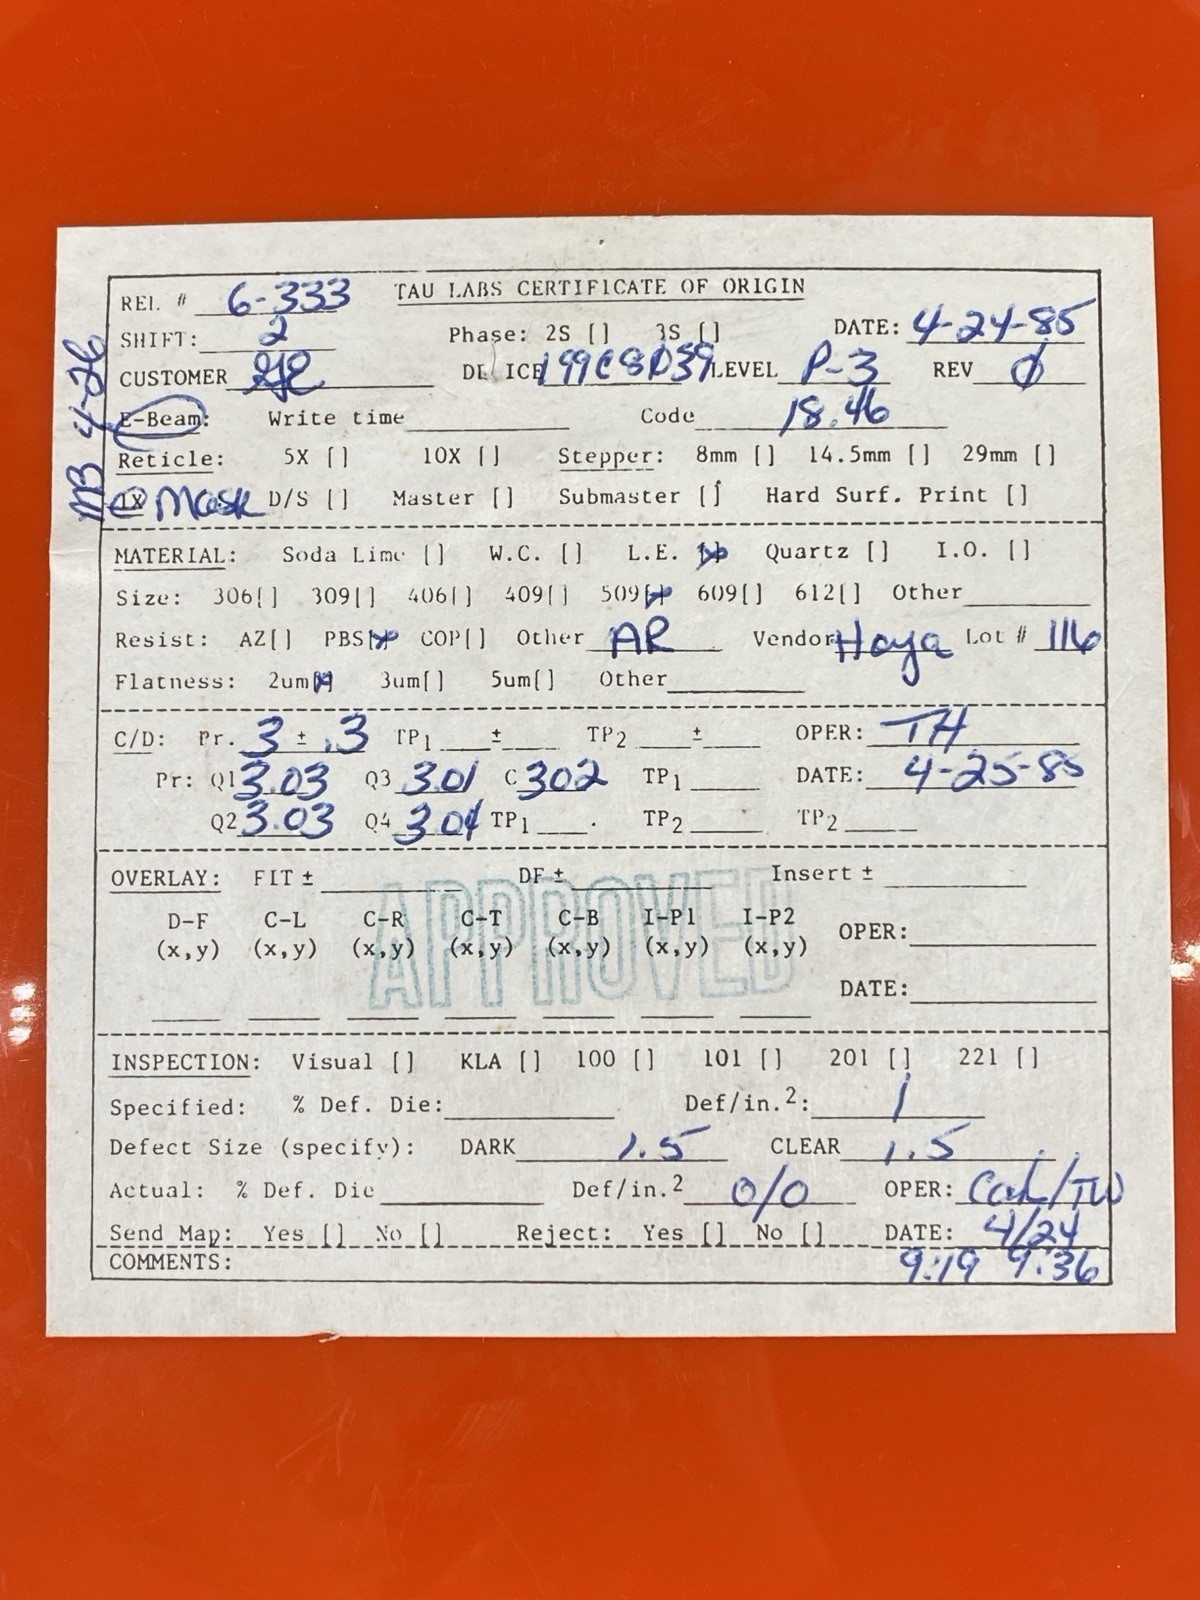 REL # 6-333 TAU LABS CERTIFICATE OF ORIGIN
SHIFT: 2 Phase: 2S [] 3S [] DATE: 4-24-85
CUSTOMER GE DEVICE 199C8D39 LEVEL P-3 REV Ø
E-Beam: Write time Code 18.46
Reticle: 5X [] 10X [] Stepper: 8mm [] 14.5mm [] 29mm []
1X Mask D/S [] Master [] Submaster [] Hard Surf. Print []
MB 4-26
MATERIAL: Soda Lime [] W.C. [] L.E. [x] Quartz [] I.O. []
Size: 306[] 309[] 406[] 409[] 509[x] 609[] 612[] Other
Resist: AZ[] PBS[x] COP[] Other AR Vendor Hoya Lot # 116
Flatness: 2um[x] 3um[] 5um[] Other
C/D: Pr. 3 ± .3 TP1 ± TP2 ± OPER: TH
Pr: Q1 3.03 Q3 3.01 C 302 TP1 DATE: 4-25-85
Q2 3.03 Q4 3.04 TP1 TP2 TP2
OVERLAY: FIT ± DF ± Insert ±
APPROVED
D-F C-L C-R C-T C-B I-P1 I-P2 OPER:
(x,y) (x,y) (x,y) (x,y) (x,y) (x,y) (x,y)
DATE:
INSPECTION: Visual [] KLA [] 100 [] 101 [] 201 [] 221 []
Specified: % Def. Die: Def/in.²: 1
Defect Size (specify): DARK 1.5 CLEAR 1.5
Actual: % Def. Die Def/in.² 0/0 OPER: /TW
Send Map: Yes [] No [] Reject: Yes [] No [] DATE: 4/24
COMMENTS: 9:19 9:36